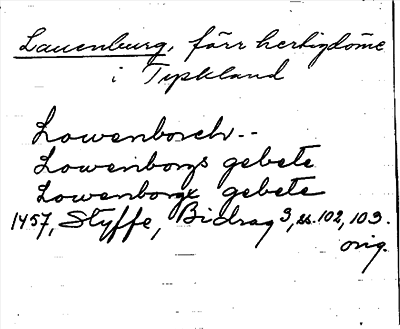 Lauenburg, förr hertigdöme
i Tyskland
Lowenborch--
Lowenborgs gebete
Lowenborge gebete
1457, Styffe, Bidrag 3, ss. 102, 103.
orig.